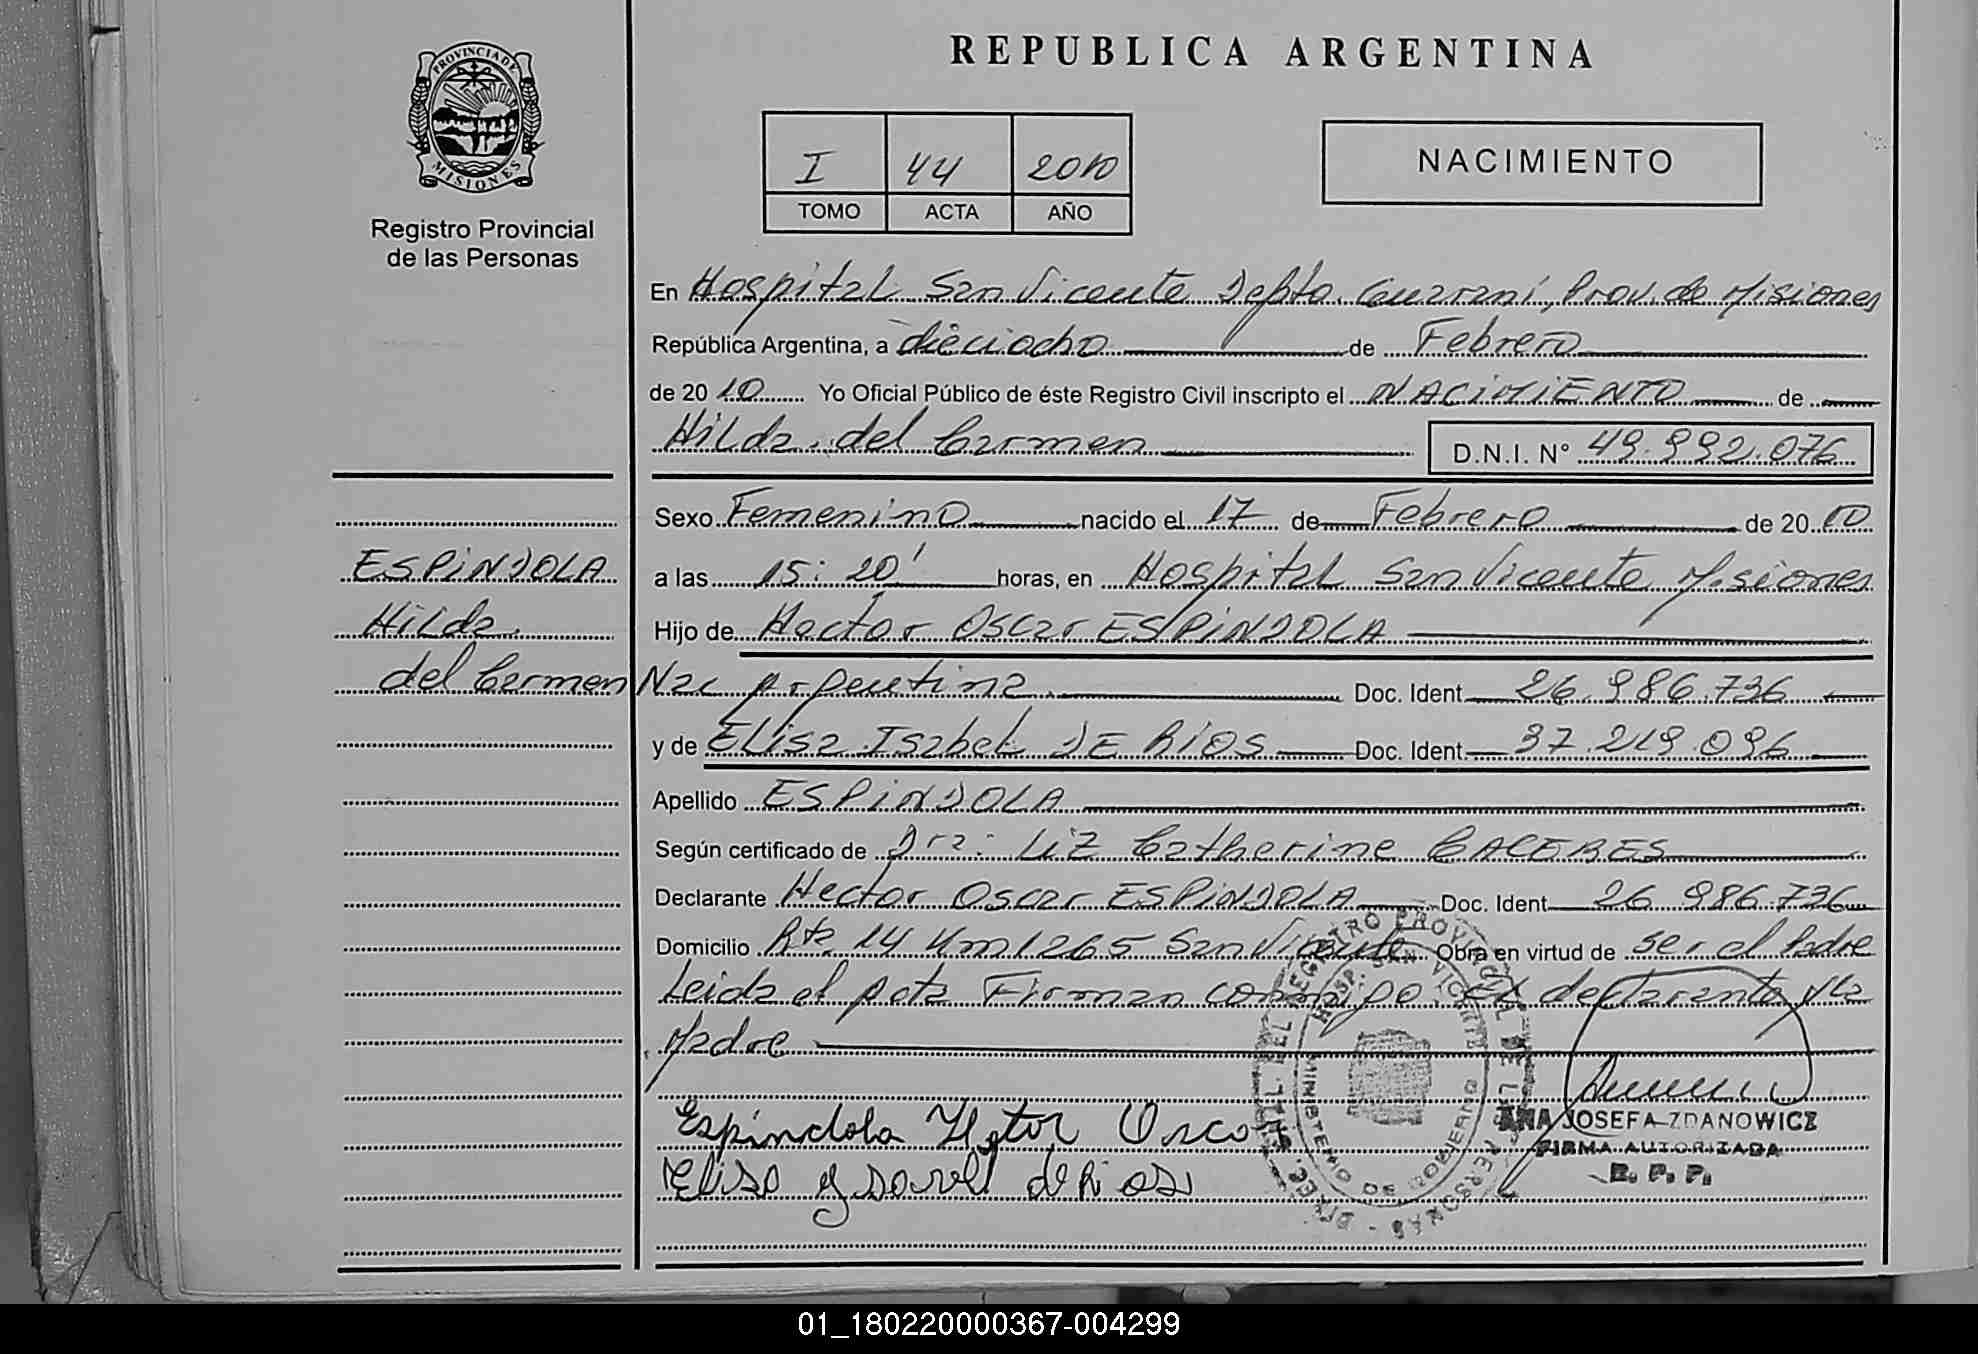 PROVINCIA DE
MISIONES
Registro Provincial
de las Personas
REPUBLICA ARGENTINA
I 44 2010
TOMO ACTA AÑO
NACIMIENTO
En Hospital San Vicente Depto. Guarani, Prov. de Misiones
República Argentina, a dieciocho de Febrero
de 2010 Yo Oficial Público de éste Registro Civil inscripto el NACIMIENTO de
Hilda del Carmen D.N.I. N° 49.992.076
Sexo Femenino nacido el 17 de Febrero de 2010
a las 15:20' horas, en Hospital San Vicente Misiones
Hijo de Hector Oscar ESPINDOLA
Nac Argentina Doc. Ident 26.986.736
y de Elisa Isabel DE RIOS Doc. Ident. 37.219.096
Apellido ESPINDOLA
Según certificado de Dra: Liz Catherine CACERES
Declarante Hector Oscar ESPINDOLA Doc. Ident 26 986.736
Domicilio Rta 14 Km 1265 San Vicente Obra en virtud de ser el Padre
Leida el Acta Firman conmigo. El declarante y la
Madre
ESPINDOLA
Hilda
del Carmen
Espíndola Hector Oscar
Elisa ysavel de Rios
HOSP. SAN VICENTE
MINISTERIO DE GOBIERNO
ANA JOSEFA ZDANOWICZ
FIRMA AUTORIZADA
R. P. P.
01_180220000367-004299